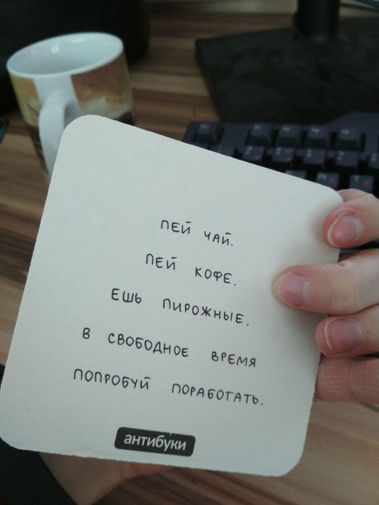 ПЕЙ ЧАЙ.
ПЕЙ КОФЕ.
ЕШЬ ПИРОЖНЫЕ.
В СВОБОДНОЕ ВРЕМЯ
ПОПРОБУЙ ПОРАБОТАТЬ.
антибуки